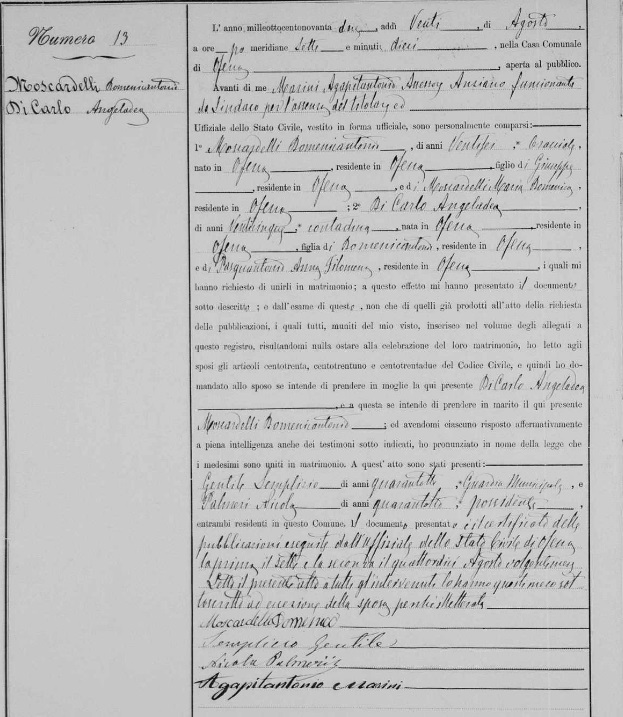 Numero 13
Moscardelli Domenicantonio
Di Carlo Angeladea
L'anno milleottocentonovanta due, addì Venti, di Agosto
a ore po meridiane Sette e minuti dieci, nella Casa Comunale
di Ofena, aperta al pubblico.
Avanti di me Marini Agapitantonio Assessore Anziano funzionante
da Sindaco per l'assenza del titolare ed
Uffiziale dello Stato Civile, vestito in forma uffiziale, sono personalmente comparsi:
1º Moscardelli Domenicantonio, di anni ventisei, bracciale,
nato in Ofena, residente in Ofena, figlio di Giuseppe
, residente in Ofena, e di Moscardelli Maria Domenica
residente in Ofena; 2º Di Carlo Angeladea
di anni venticinque, contadina, nata in Ofena, residente in
Ofena, figlia di Domenicantonio, residente in Ofena,
e di Pasquantonio Anna Filomena, residente in Ofena, i quali mi
hanno richiesto di unirli in matrimonio; a questo effetto mi hanno presentato il documento
sotto descritto; e dall'esame di questo, non che di quelli già prodotti all'atto della richiesta
delle pubblicazioni, i quali tutti, muniti del mio visto, inserisco nel volume degli allegati a
questo registro, risultandomi nulla ostare alla celebrazione del loro matrimonio, ho letto agli
sposi gli articoli centotrenta, centotrentuno e centotrentadue del Codice Civile, e quindi ho do-
mandato allo sposo se intende di prendere in moglie la qui presente Di Carlo Angeladea
, e a questa se intende di prendere in marito il qui presente
Moscardelli Domenicantonio; ed avendomi ciascuno risposto affermativamente
a piena intelligenza anche dei testimoni sotto indicati, ho pronunziato in nome della legge che
i medesimi sono uniti in matrimonio. A quest'atto sono stati presenti:
Gentile Semplicio di anni quarantotto, Guardia Municipale, e
Palmeri Nicola di anni quarantotto, possidente,
entrambi residenti in questo Comune. Il documento presentato è il certificato delle
pubblicazioni eseguite dall'uffiziale dello Stato Civile di Ofena
la prima il sette e la seconda il quattordici Agosto volgente mese
Letto il presente atto a tutti gl'intervenuti lo hanno questi meco sot
toscritto ad eccezione della sposa perché illetterata
Moscardelli Domenico
Semplicio Gentile
Nicola Palmerii
Agapitantonio Marini